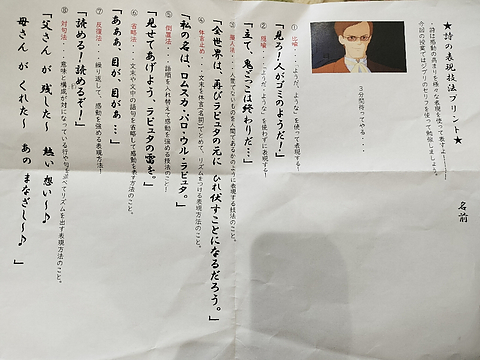 ★詩の表現技法プリント★
名前
詩は感動の高まりを様々な表現を使って表すよ
今回の授業ではジブリのセリフを使って勉強しましょう。
３分間待ってやる・・・
① 比喩・・・「ようだ、ような」を使って表現する！
「見ろ！人がゴミのようだ！」
② 隠喩・・・「ようだ・ような」を使わずに表現する！
「立て、鬼ごっこは終わりだ…」
③ 擬人法・・・人間でないものを人間であるかのように表現する技法のこと。
「全世界は、再びラピュタの元にひれ伏すことになるだろう。」
④ 体言止め・・・文末を体言(名詞)でとめて、リズムをつける表現方法のこと。
「私の名は、ロムスカ・パロ・ウル・ラピュタ。」
⑤ 倒置法・・・語順を入れ替えて感動を強める技法のこと！
「見せてあげよう、ラピュタの雷を。」
⑥ 省略法・・・文末や文中の語句を省略して感動を表す方法のこと。
「あぁあ、目が、目がぁ…」
⑦ 反復法・・・繰り返して、感動を強める表現方法！
「読める！読めるぞ！」
⑧ 対句法・・・意味と構成が対になっている行や句を並べてリズムを出す表現方法のこと。
「父さん が 残した～ 熱い 想い～♪
母さん が くれた～ あの まなざし～♪ 」